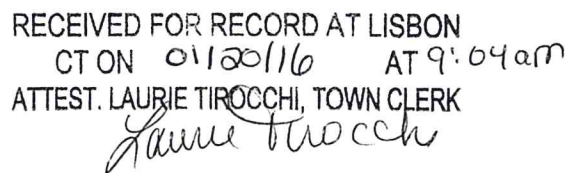 RECEIVED FOR RECORD AT LISBON
CT ON 01/20/16 AT 9:04am
ATTEST. LAURIE TIROCCHI, TOWN CLERK
Laurie Tirocchi